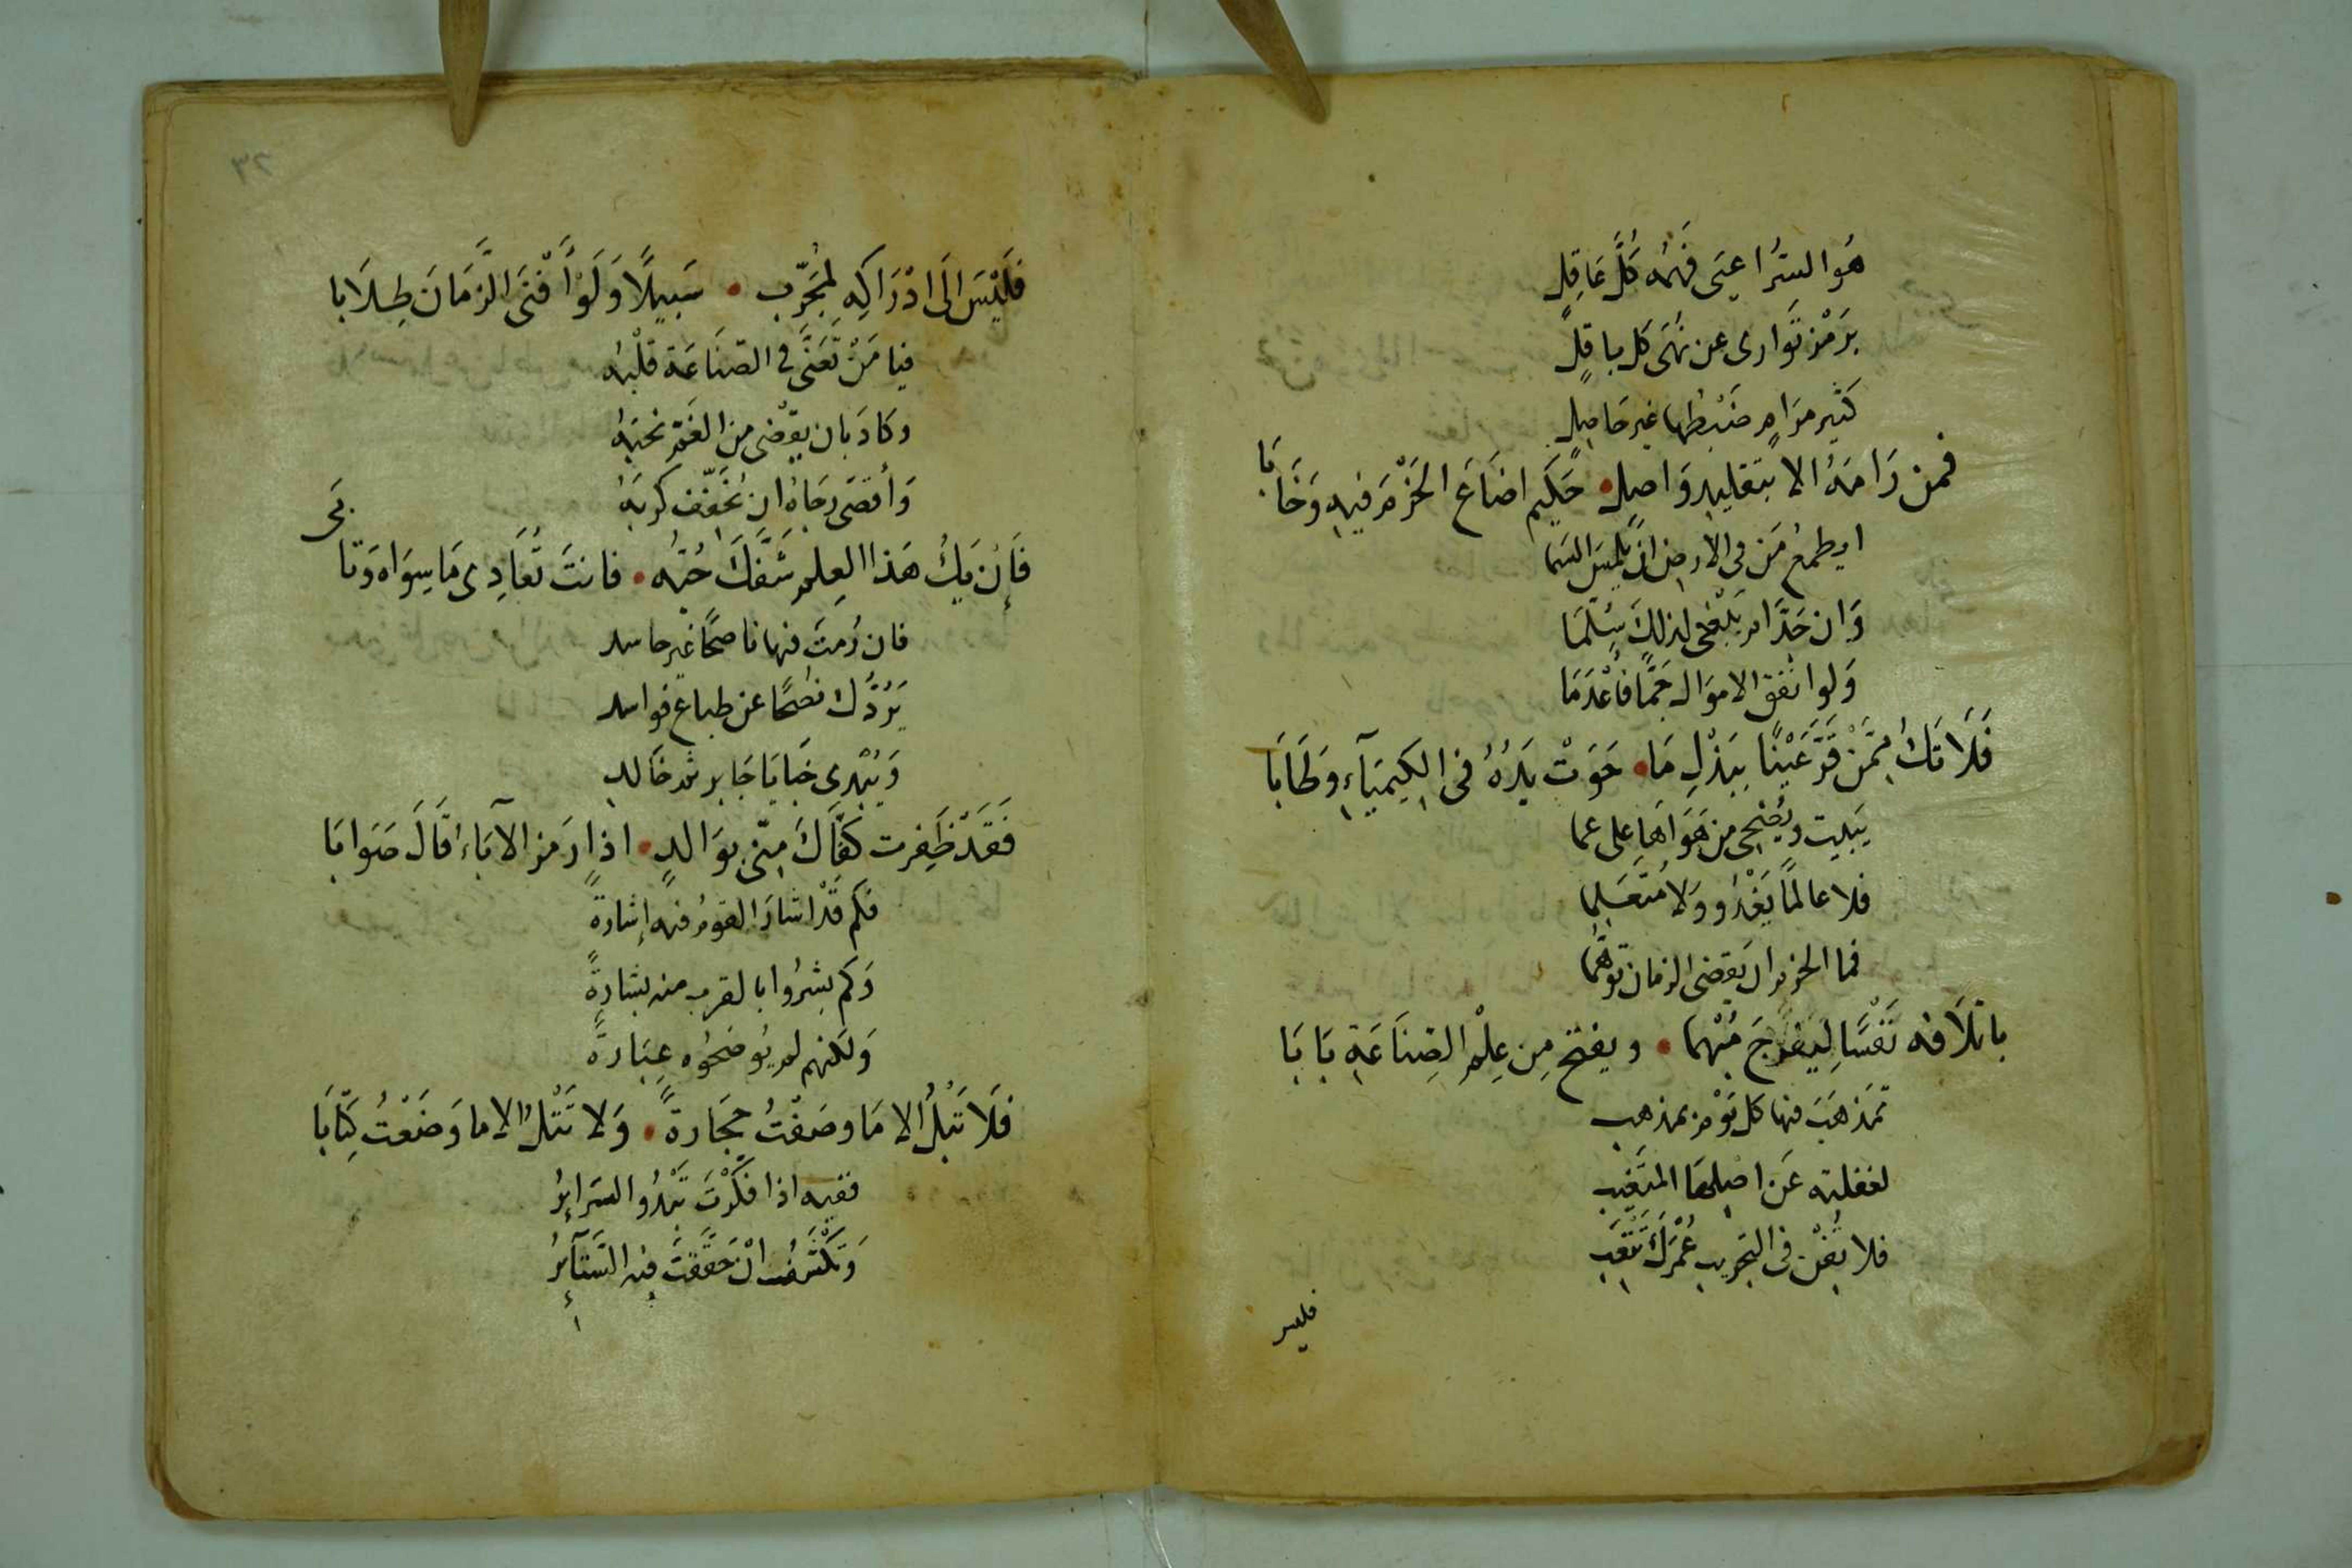 هُوَ السرُّ اعيَى فَهمُه كُلَّ عَاقِلٍ
برَمْزٍ تَوارى عن نُهَى كل باقلٍ
كَثِير مرَامٍ ضَبْطُها غير حَاصِلٍ
فمن رَامَهُ الا بتقليدِ وَاصِلٍ • حَكِيم اضَاعَ الحَزْمَ فيهِ وَخَابَا
ايطمعُ مَن فى الارضِ ان يلمِسَ السَما
وَان جَدَّ ام يَبْغى لذلكَ سُلَّمَا
وَلو انفق الاموَال جَمًّا فاعْدَمَا
فَلَا تَكُ مِمَّنْ قَرَّ عَيْنًا بِبَذْلِ مَا • حَوَتْ يَدُهُ فى الكِيميَآءِ وطَابَا
يَبيت ويُضحِى من هَوَاهَا على عما
فلا عالمًا يَغْدُو وَلا مُتعَلِما
فما الحزم ان يَقضى الزمان توهُّمَا
باتلَافه نَفْسًا لِيَفْرَجَ مُبْهما • ويفتح مِن عِلْمِ الصِنَاعَةِ بَابَا
تمَذهَبَ فيها كل قَوْمٍ بمذهب
لغفلته عَن اصلِهَا المتغَيب
فلا تُفْنِ فى التجريب عُمْرَكَ تَتْعَبِ
فليس
٢٣
فَلَيْسَ الَى ادْرَاكِهِ لمُجَرّبٍ • سَبيلًا وَلَوْ أَفْنَى الزَّمَانَ طِلَابا
فيا مَنْ تَعَنَّى فى الصنَاعَة قلْبُه
وكادَ بان يقْضى من الغَمّ نحبَهُ
وَأقصَى رجَاهُ ان يُخَفّف كربَهُ
فَإن يَكُ هَذا العِلم شَفَّكَ حُبُّه • فانتَ تُعَادِى مَا سِوَاه وَتابَى
فان رُمتَ فيها ناصحًا غير حاسد
يَرُدُّك نصْحًا عن طباع فواسد
وَيُبْدى خبايَا جَابر ثم خَالدٍ
فَقَدْ ظَفِرت كفّاكَ منّى بوَالدٍ • اذا رَمز الآبَاءُ قَالَ صَوابَا
فكم قَدْ اشارَ القومُ فيه إشارةً
وَكم بشرُوا بالقرب منه بشارةً
وَلكنهم لم يُوضحُوه عِبَارةً
فَلَا تَبْلُ الا مَا وصَفْتُ حِجَارةً • وَلا تَتْلُ الا ما وَضَعْتُ كِتَابَا
ففيه اذا فكرْتَ تَبْدُو السَرايرُ
وَتكْشَفُ انْ حَقَّقتَ فيه السَّتآئِرُ